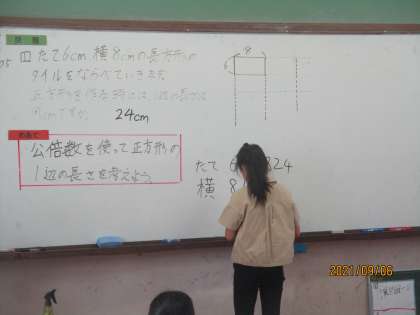 四 たて6cm 横8cmの長方形の
タイルをならべていきます。
正方形を作る時には、1辺の長さは
何cmですか。 24cm
めあて
公倍数を使って正方形の
1辺の長さを考えよう。
8
6
たて 6 24
横 8
2021/09/06